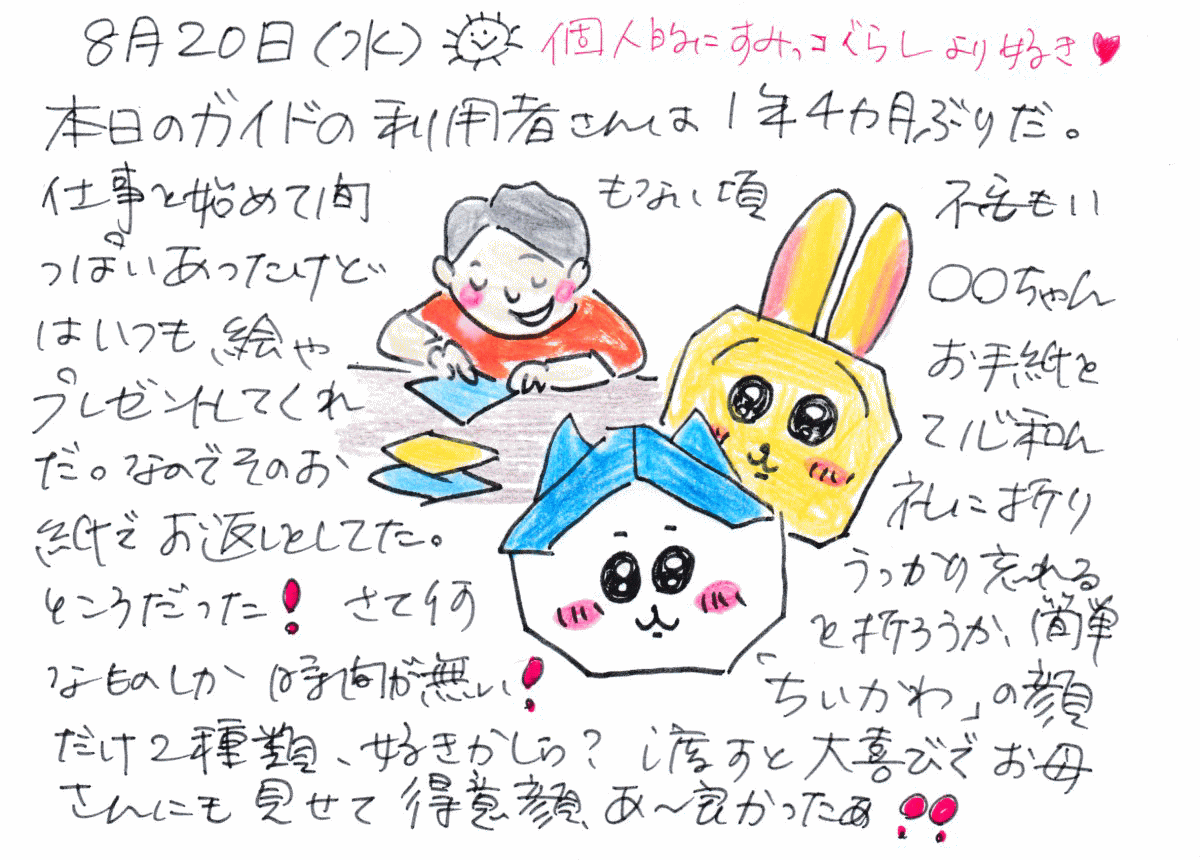 8月20日(水) 個人的にすみっコぐらしより好き
本日のガイドの利用者さんは1年4カ月ぶりだ。
仕事を始めて間もない頃 不安もい
っぱいあったけど 〇〇ちゃん
はいつも絵や お手紙を
プレゼントしてくれ て心和ん
だ。なのでそのお 礼に折り
紙でお返しとしてた。 うっかり忘れる
ところだった! さて何を折ろうか、簡単
なものしか時間が無い! 「ちいかわ」の顔
だけ2種類、好きかしら?渡すと大喜びでお母
さんにも見せて得意顔、あ〜良かったぁ!!